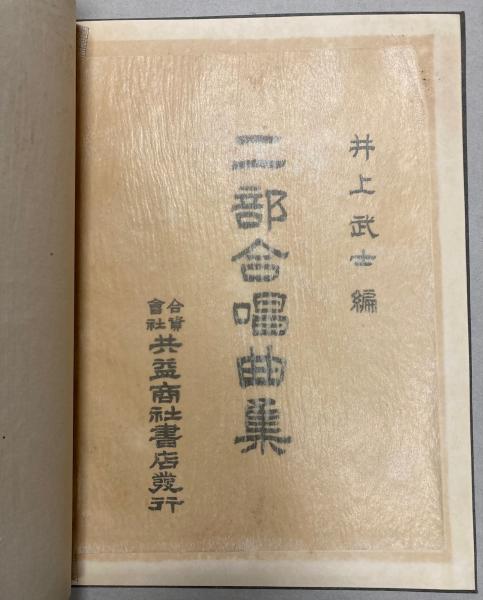 井上武士編
二部合唱曲集
合資會社共益商社書店發行